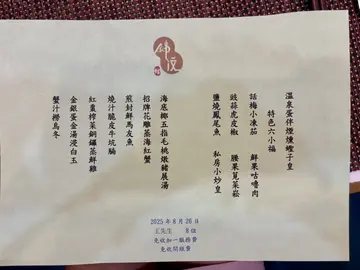 溫泉蛋伴煙燻蟶子皇
特色六小福
話梅小凍茄 鮮果咕嚕肉
豉蒜虎皮椒 腰果莧菜崧
鹽燒鳳尾魚 私房小炒皇
海底椰五指毛桃燉豬展湯
招牌花雕蒸海紅蟹
煎封鮮馬友魚
燒汁脆皮牛坑腩
紅棗榨菜銅鑼蒸鮮雞
金銀蛋金湯浸白玉
蟹汁撈烏冬
2025年8月26日
王先生 8位
免收加一服務費
免收開瓶費